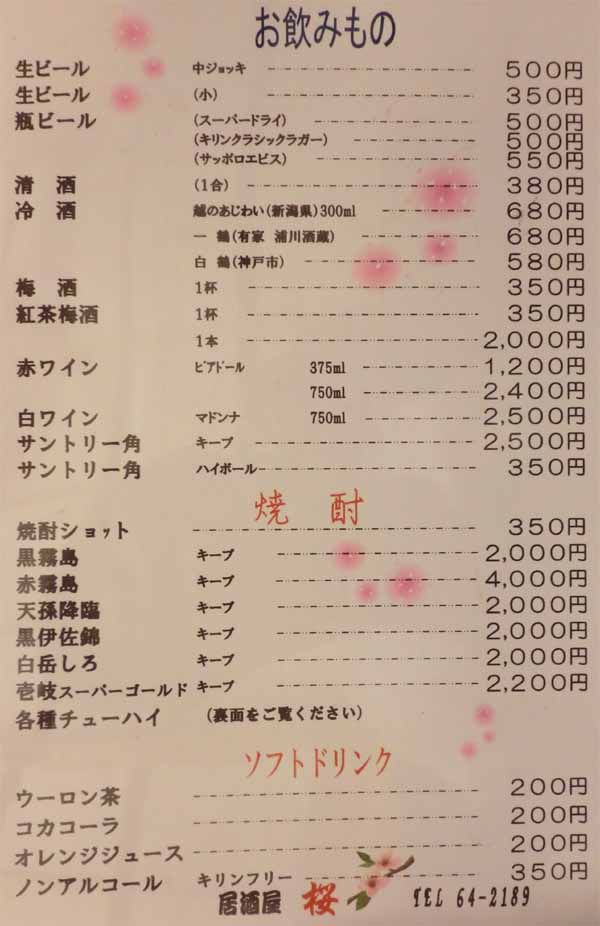 お飲みもの
生ビール 中ジョッキ 500円
生ビール (小) 350円
瓶ビール (スーパードライ) 500円
(キリンクラシックラガー) 500円
(サッポロエビス) 550円
清 酒 (1合) 380円
冷 酒 越のあじわい(新潟県)300ml 680円
一 鶴(有家 浦川酒蔵) 680円
白 鶴(神戸市) 580円
梅 酒 1杯 350円
紅茶梅酒 1杯 350円
1本 2,000円
赤ワイン ピアドール 375ml 1,200円
750ml 2,400円
白ワイン マドンナ 750ml 2,500円
サントリー角 キープ 2,500円
サントリー角 ハイボール 350円
焼 酎
焼酎ショット 350円
黒霧島 キープ 2,000円
赤霧島 キープ 4,000円
天孫降臨 キープ 2,000円
黒伊佐錦 キープ 2,000円
白岳しろ キープ 2,000円
壱岐スーパーゴールド キープ 2,200円
各種チューハイ (裏面をご覧ください)
ソフトドリンク
ウーロン茶 200円
コカコーラ 200円
オレンジジュース 200円
ノンアルコール キリンフリー 350円
居酒屋 桜 TEL 64-2189